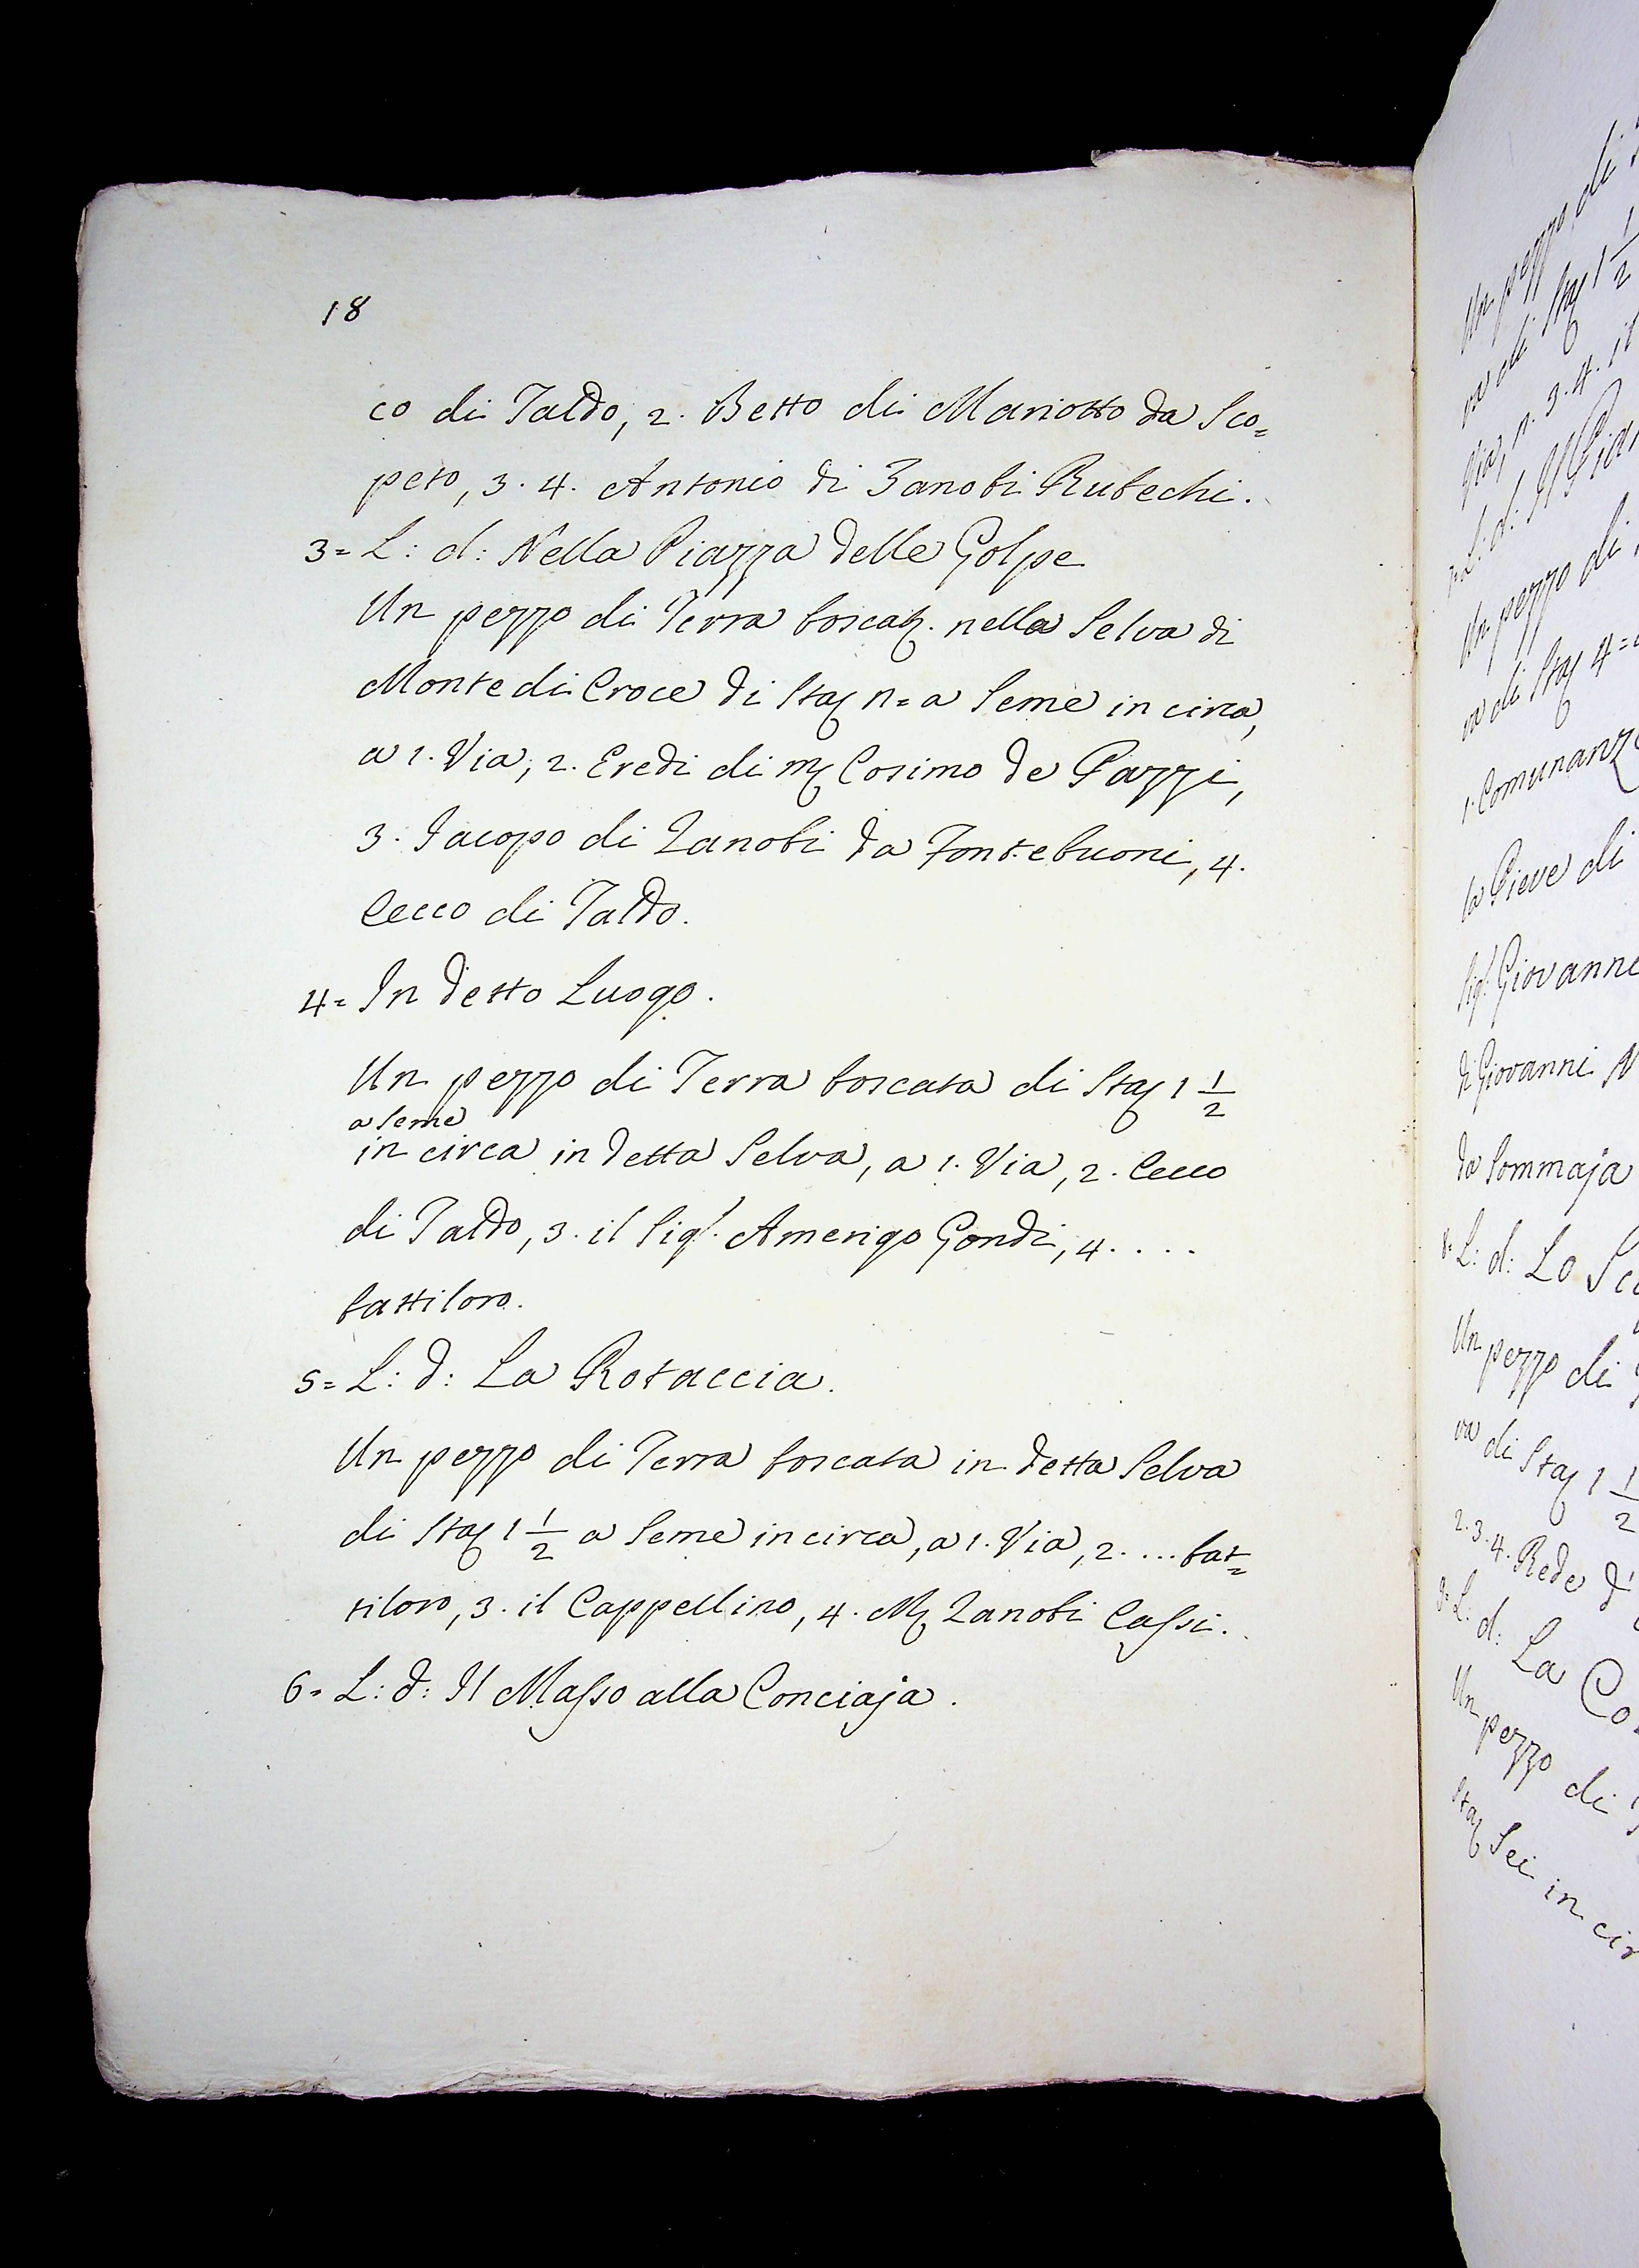 18
co di Taldo, 2. Betto di Mariotto da Sco=
peto, 3. 4. Antonio di Zanobi Rubechi.
3= L: d: Nella Piazza delle Golpe
Un pezzo di Terra boscat. nella Selva di
Monte di Croce di Sta n= a Seme in circa,
a 1. Via, 2. Eredi di M Cosimo de Pazzi,
3. Jacopo di Zanobi da Fontebuoni, 4.
Cecco di Taldo.
4= In detto Luogo.
Un pezzo di Terra boscata di Sta 1 1/2
a Seme
in circa in detta Selva, a 1. Via, 2. Cecco
di Taldo, 3. il Sig. Amerigo Gondi, 4. . . .
battiloro.
5= L: d: La Rotaccia.
Un pezzo di Terra boscata in detta Selva
di Sta 1 1/2 a Seme in circa, a 1. Via, 2. ... bat=
tiloro, 3. il Cappellino, 4. M Zanobi Cassi.
6= L: d: Il Masso alla Conciaja.
Un pezzo di
va di Sta 1 1/2
n. 3. 4. il
L: d: Il
Un pezzo di
va di Sta 4=
1. Comunanz
la Pieve di
Sig. Giovanni
di Giovanni
da Sommaja
8= L: d: Lo
Un pezzo di
va di Sta 1 1/2
2. 3. 4. Rede
L: d: La
Un pezzo di
Sta Sei in cir